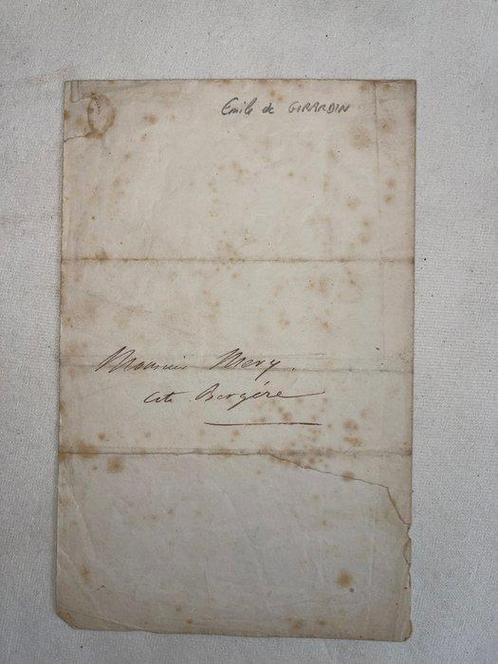 Emile de GIRARDIN
Monsieur Mery.
Cité Bergère